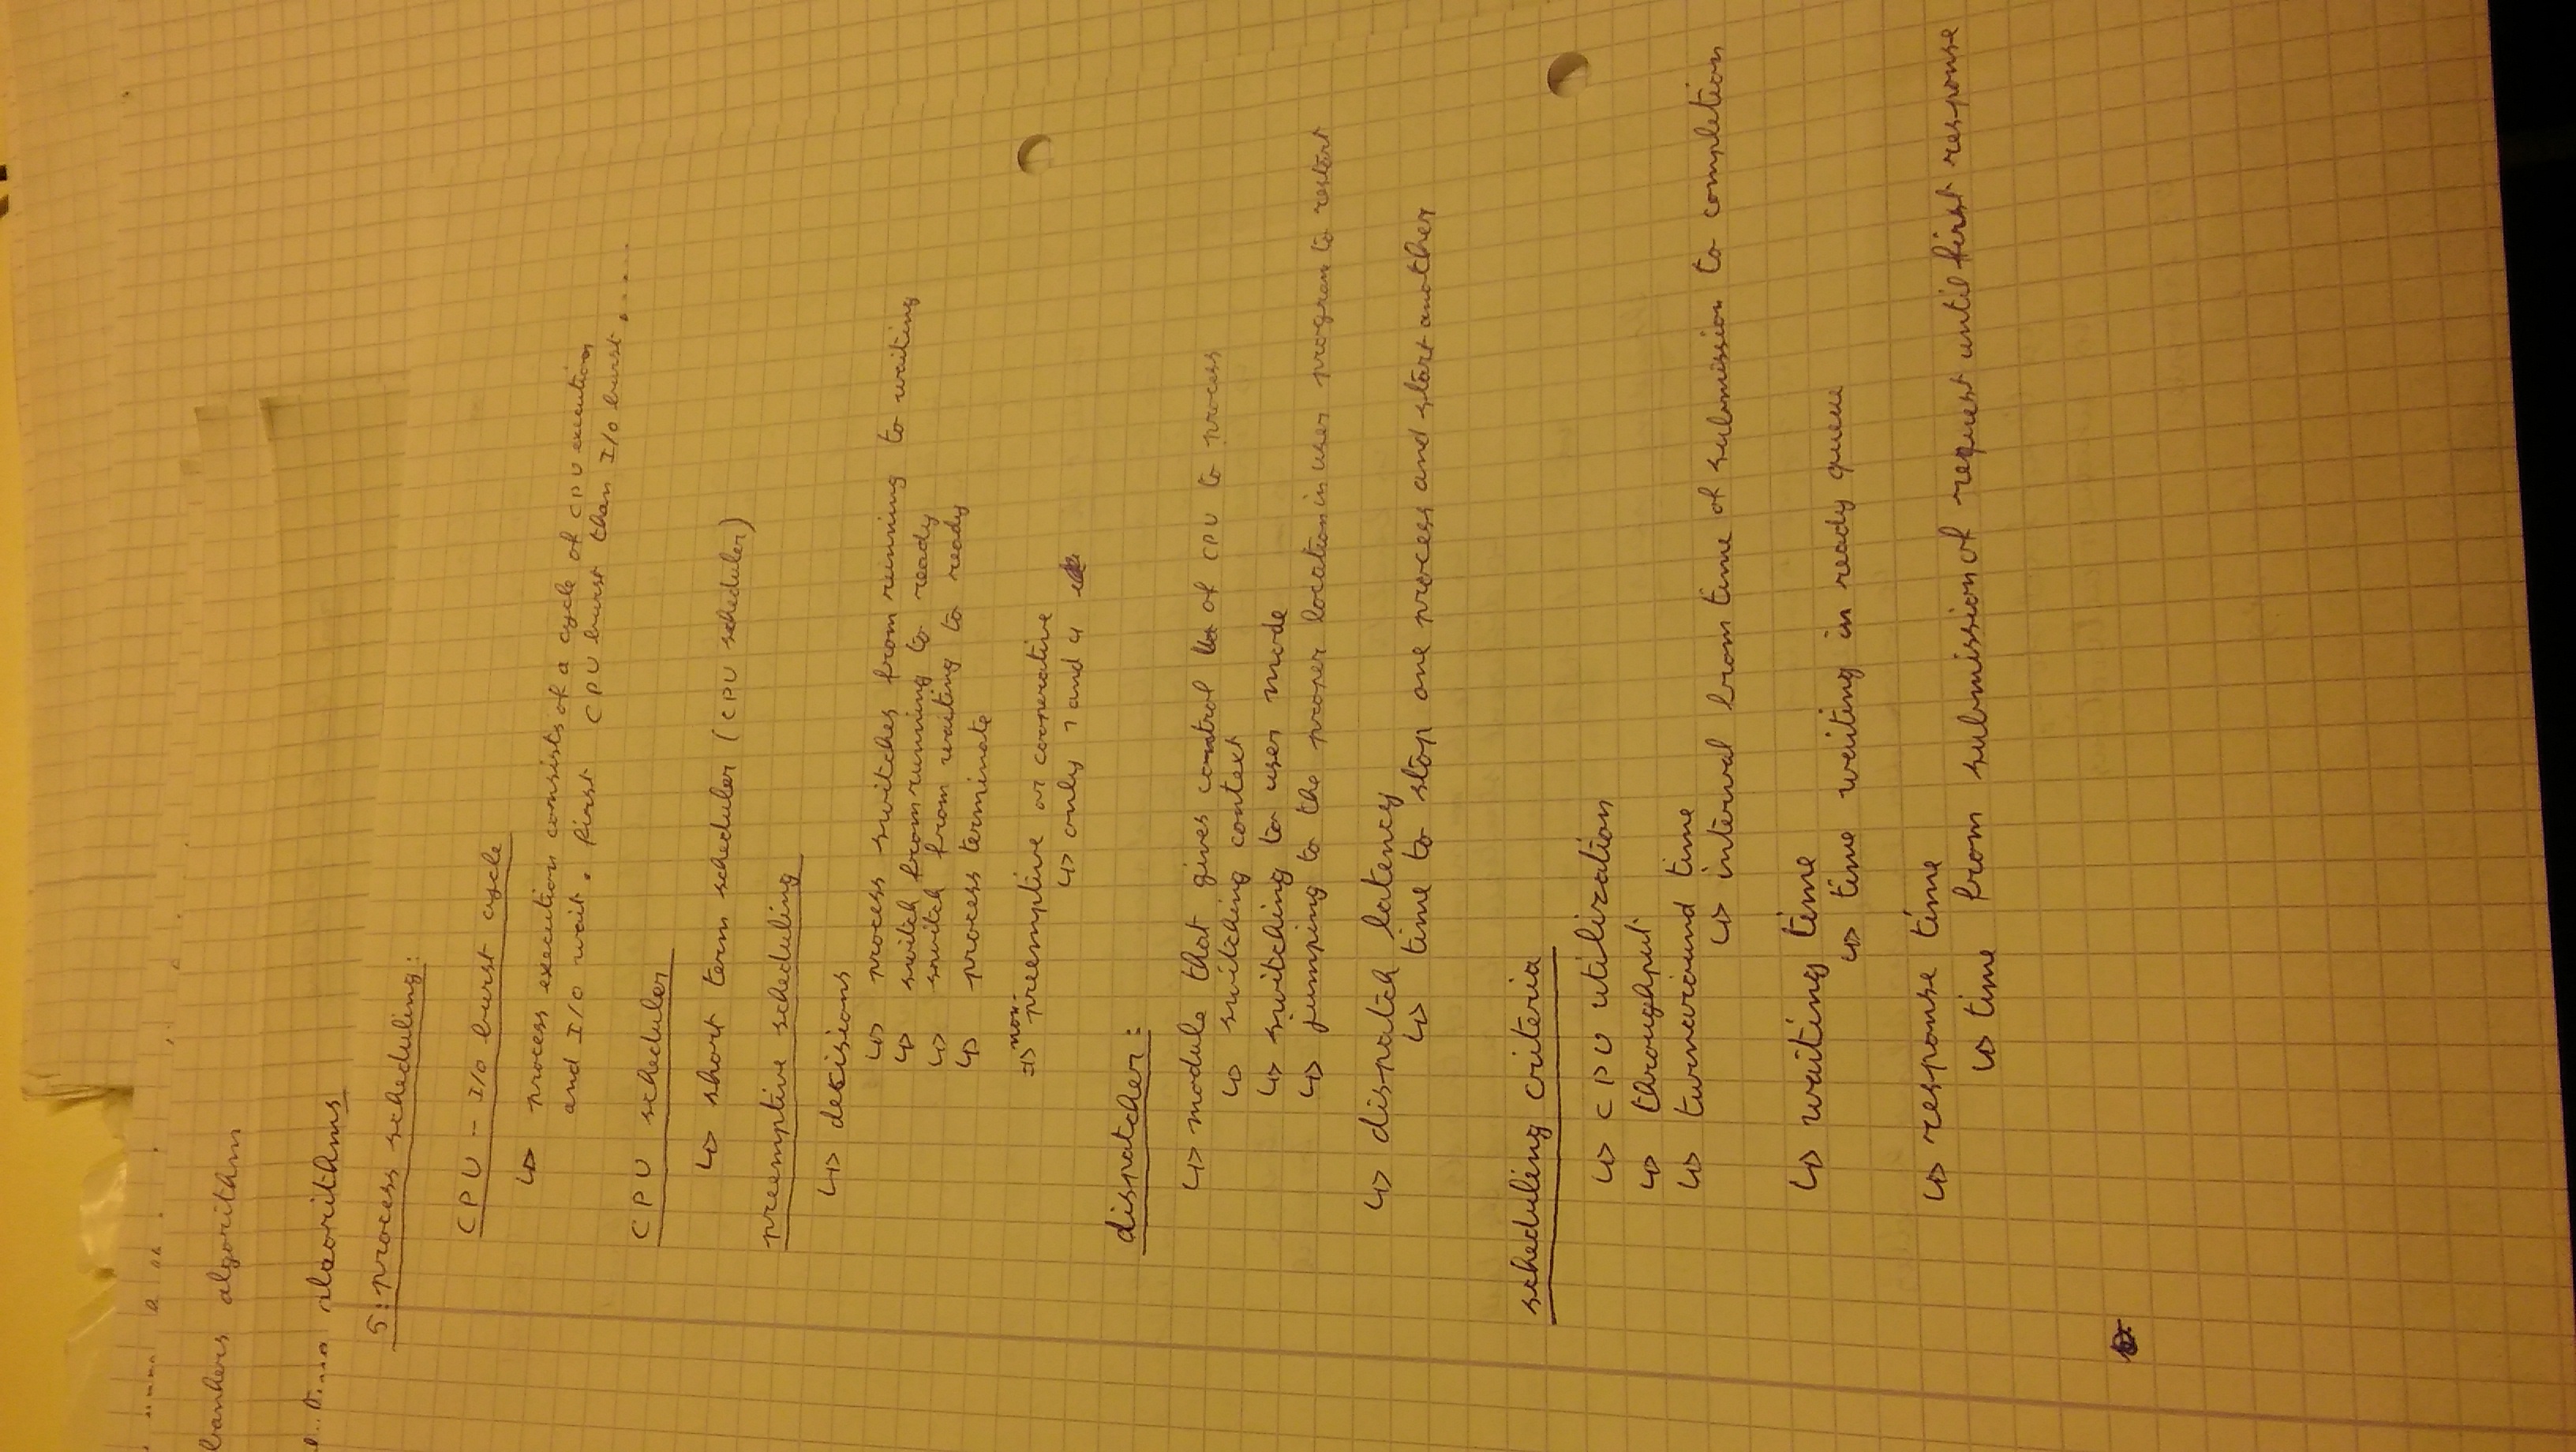 bankers algorithm
algorithms
5: process scheduling:
CPU - I/O burst cycle
↳ process execution consists of a cycle of CPU execution
and I/O wait. first CPU burst than I/O burst, .....
CPU scheduler
↳ short term scheduler (CPU scheduler)
preemptive scheduling
↳ decisions
↳ process switches from running to waiting
↳ switch from running to ready
↳ switch from waiting to ready
↳ process terminate
=> non-preemptive or cooperative
↳ only 1 and 4
dispatcher:
↳ module that gives control of CPU to process
↳ switching context
↳ switching to user mode
↳ jumping to the proper location in user program to restart
↳ dispatch latency
↳ time to stop one process and start another
scheduling criteria
↳ CPU utilization
↳ throughput
↳ turnaround time
↳ interval from time of submission to completion
↳ waiting time
↳ time waiting in ready queue
↳ response time
↳ time from submission of request until first response